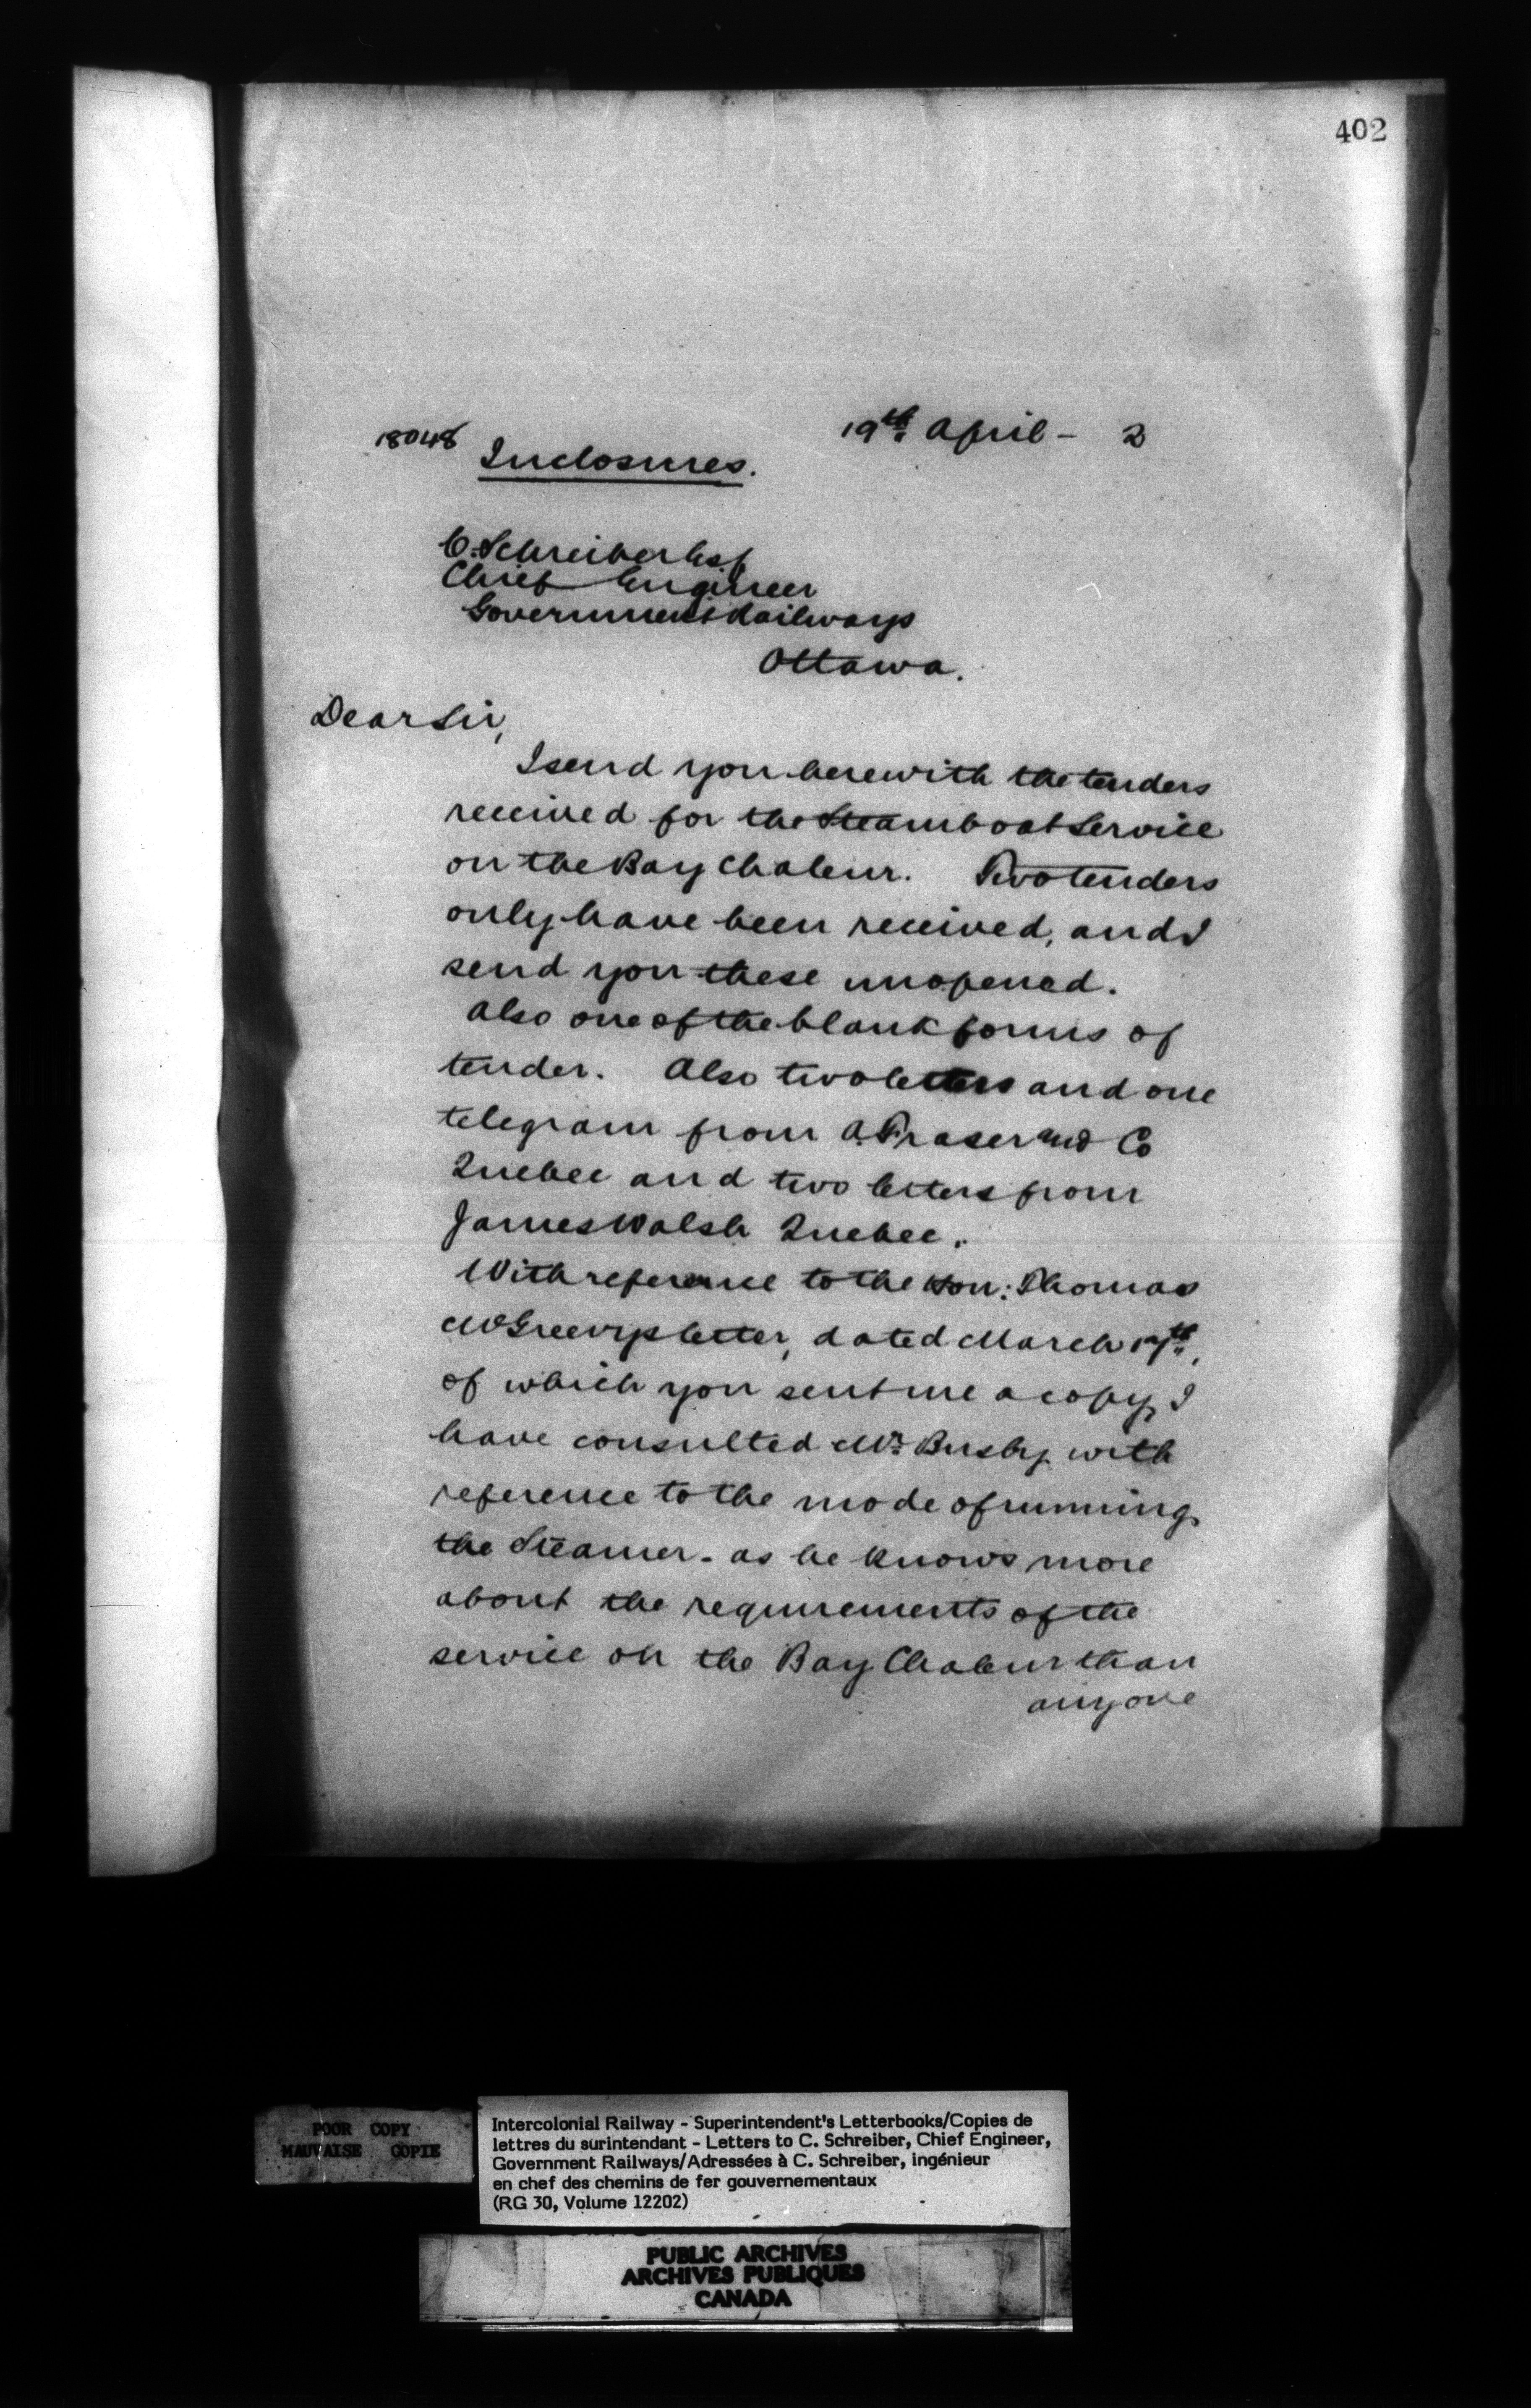 402
19th. April - 2
18048 Inclosures.
C. Schreiber Esq
Chief Engineer
Government Railways
Ottawa.
Dear Sir,
I send you herewith the tenders
received for the Steamboat Service
on the Bay Chaleur. Two tenders
only have been received, and I
send you these unopened.
Also one of the blank forms of
tender. Also two letters and one
telegram from A. Fraser and Co
Quebec and two letters from
James Walsh Quebec.
With reference to the Hon: Thomas
McGreevys letter, dated March 17th,
of which you sent me a copy, I
have consulted Mr. Busby with
reference to the mode of running
the Steamer - as he knows more
about the requirements of the
service on the Bay Chaleur than
anyone
POOR COPY
MAUVAISE COPIE
Intercolonial Railway - Superintendent's Letterbooks/Copies de
lettres du surintendant - Letters to C. Schreiber, Chief Engineer,
Government Railways/Adressées à C. Schreiber, ingénieur
en chef des chemins de fer gouvernementaux
(RG 30, Volume 12202)
PUBLIC ARCHIVES
ARCHIVES PUBLIQUES
CANADA